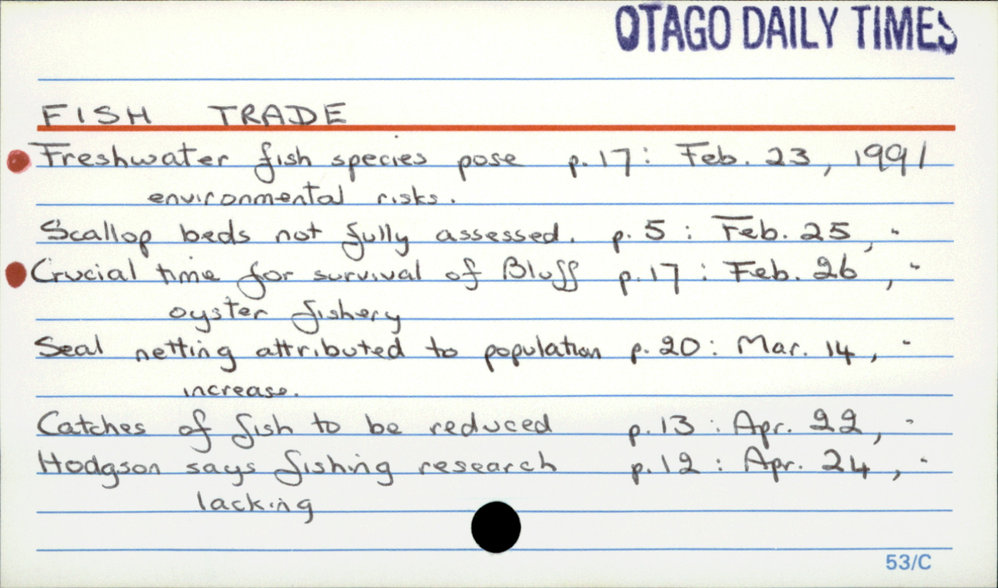 OTAGO DAILY TIMES
FISH TRADE
Freshwater fish species pose p. 17 : Feb. 23, 1991
environmental risks.
Scallop beds not fully assessed. p. 5 : Feb. 25, "
Crucial time for survival of Bluff p. 17 : Feb. 26, "
oyster fishery
Seal netting attributed to population p. 20 : Mar. 14, "
increase.
Catches of fish to be reduced p. 13 : Apr. 22, "
Hodgson says fishing research p. 12 : Apr. 24, "
lacking
53/C